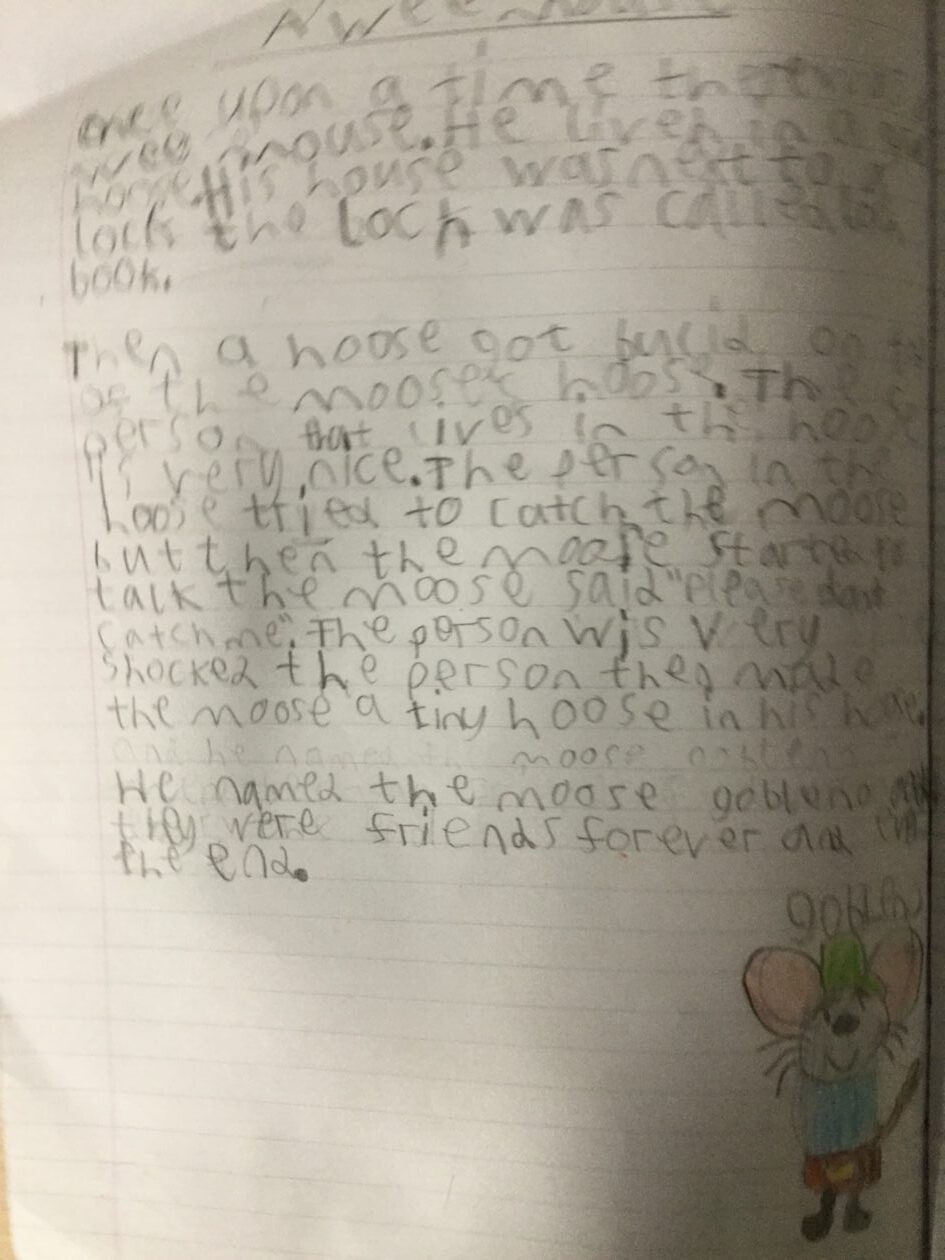 A wee mouse
once upon a time ther
wee mouse. He lived in a
hoose. His house was next to
loch the Loch was called
book.
Then a hoose got build on
of the mooses hoose. The
person that lives in the hoose
is very nice. The person in the
hoose tried to catch the moose
but then the moose started to
talk the moose said "please dont
catch me". The person wis very
shocked the person then made
the moose a tiny hoose in his
and he named the moose
He named the moose gobleno
they were friends forever and
the end.